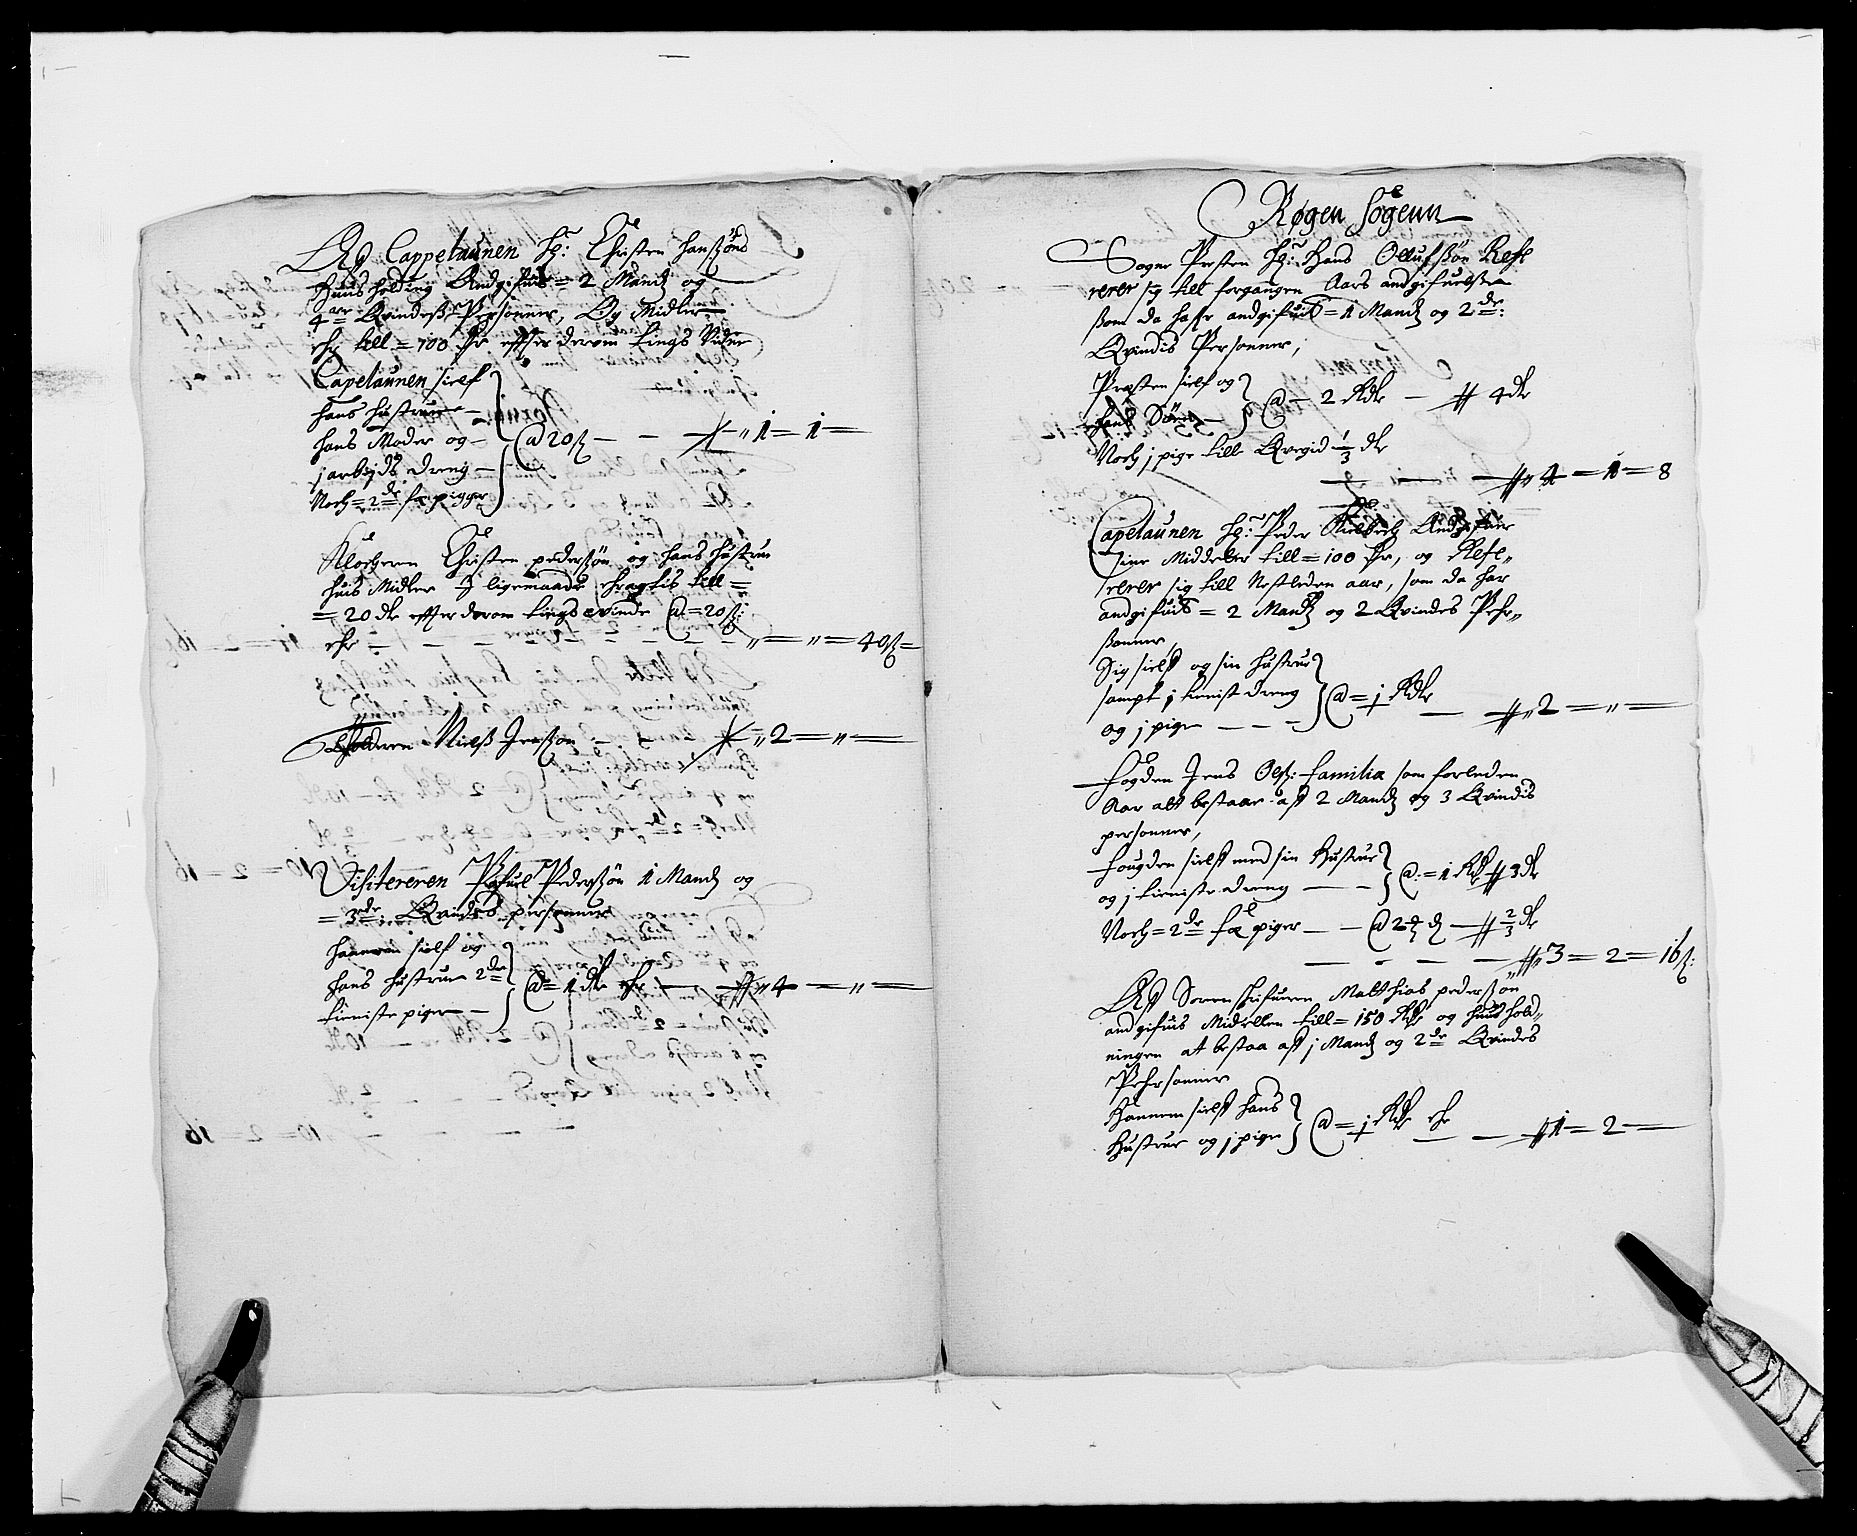 Aff Cappelaunen Hr: Christen Hanssøns
Huusholding Andgifuis = 2 Mand og
4re Qvindeß Personner, Og Midler
till = 100 dr effter derom tings Vidne
Capelaunen sielf
hans hustrue
hans Moder og
j arbejds dreng
Noch = 2de fæ pigger
@ 20 ß — — 1 = 1 =
Klocheren Christen pedersøn og hans hustrue
huis Midler J ligemaade till =
= 20 dr effter derom tings vinde @ = 20 ß:
40 ß =
Tolderen Nielß Jenssøn — 2 =
Visitereren Pofuel Pedersøn 1 Mand og
= 3de Qvindes personner
hannem sielf og
hans hustrue 2de
tieniste piger —
@ = 1 dr — 4 —
Røgen Sogenn
Sogne Presten Hr: Hans Ollufssøn Refe
rerer sig till forgangen Aars andgifuelsse
som da haffr andgifuit = 1 Mand og 2de:
Qvindis Personner,
Præsten sielf og
hans Sønn
@ — 2 Rdr — 4 dr
Noch j pige till Qvegid 1/3 dr
4 = 1 = 8
Capelaunen Hr: Peder Andgifuer
sine Middeler till = 100 dr, og Refe-
rerer sig till Nestleden aar, som da har
andgifuit = 2 Mand og 2 Qvindes Pehr-
sonner,
Sig sielf og sin hustrue
sampt j tieniste dreng
og j pige — — —
@ = j Rdr — 2 =
Fogden Jens Olß: familia som forleden
Aar alt bestaar aff 2 Mand og 3 Qvindis
personner,
Fougden sielf med sin Hustrue
og j tieniste dreng — —
@: = 1 Rdr 3 dr
Noch = 2de fæ piger — — 2/3 dr
3 = 2 = 16 ß:
Aff Sorenskrifueren Matthias pederssøn
andgifuis Midellen till = 150 Rdr og huushold-
ningen at bestaa aff j Mand og 2de Qvindes
Pehrsonner
Hannem sielf hans
Hustrue og j pige
@ = j Rdr — 1 = 2 —